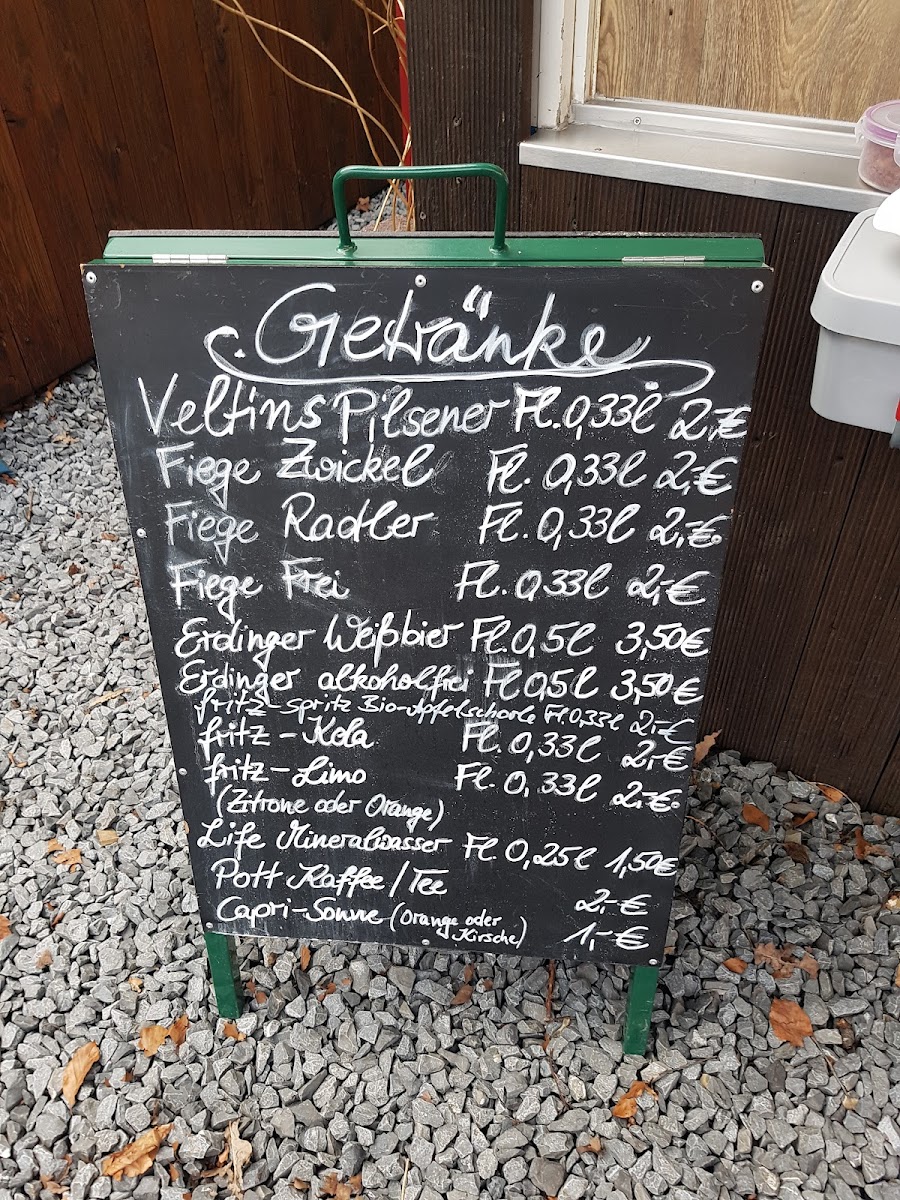 Getränke
Veltins Pilsener Fl. 0,33l 2,-€
Fiege Zwickel Fl. 0,33l 2,-€
Fiege Radler Fl. 0,33l 2,-€
Fiege Frei Fl. 0,33l 2,-€
Erdinger Weißbier Fl. 0,5l 3,50€
Erdinger alkoholfrei Fl 0,5l 3,50€
fritz-spritz Bio-Apfelschorle Fl 0,33l 2,-€
fritz-Kola Fl. 0,33l 2,-€
fritz-Limo Fl. 0,33l 2,-€
(Zitrone oder Orange)
Life Mineralwasser Fl 0,25l 1,50€
Pott Kaffee/Tee 2,-€
Capri-Sonne (Orange oder Kirsche) 1,-€